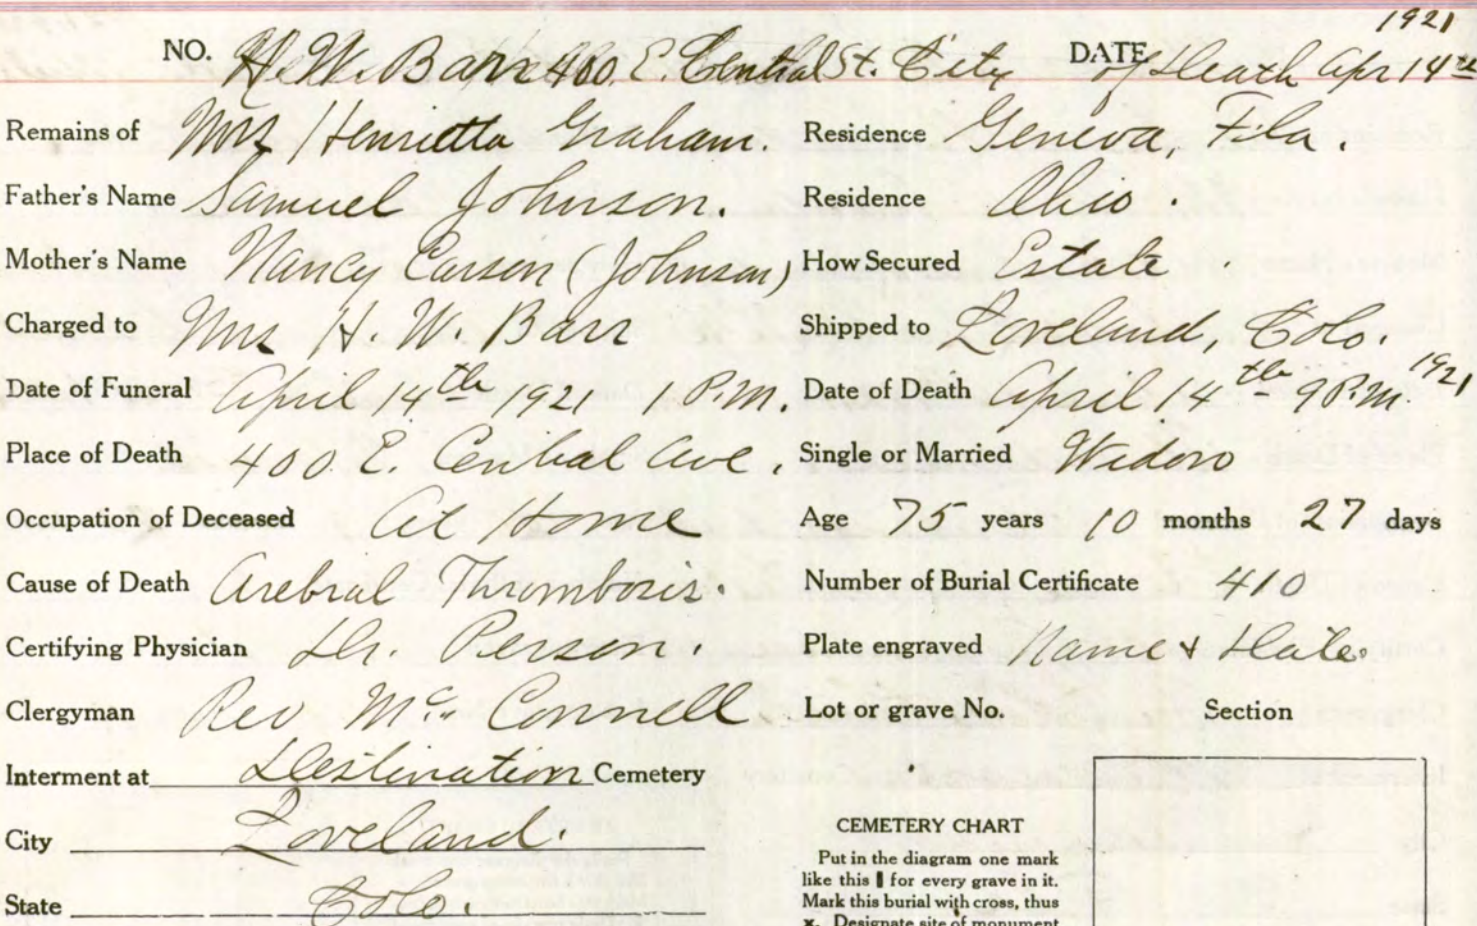 1921
NO. H. W. Barr 400 E. Central St. City DATE of Death Apr 14th
Remains of Mrs Henrietta Graham. Residence Geneva, Fla.
Father's Name Samuel Johnson. Residence Ohio.
Mother's Name Nancy Carson (Johnson) How Secured Estate
Charged to Mrs H. W. Barr Shipped to Loveland, Colo.
Date of Funeral April 14th 1921 1 P.M. Date of Death April 14th 9 P.M. 1921
Place of Death 400 E. Central Ave. Single or Married Widow
Occupation of Deceased At Home Age 75 years 10 months 27 days
Cause of Death Cerebral Thrombosis. Number of Burial Certificate 410
Certifying Physician Dr. Person. Plate engraved Name & Date.
Clergyman Rev McConnell Lot or grave No. Section
Interment at Destination Cemetery
City Loveland.
State Colo.
CEMETERY CHART
Put in the diagram one mark
like this ▮ for every grave in it.
Mark this burial with cross, thus
x. Designate site of monument